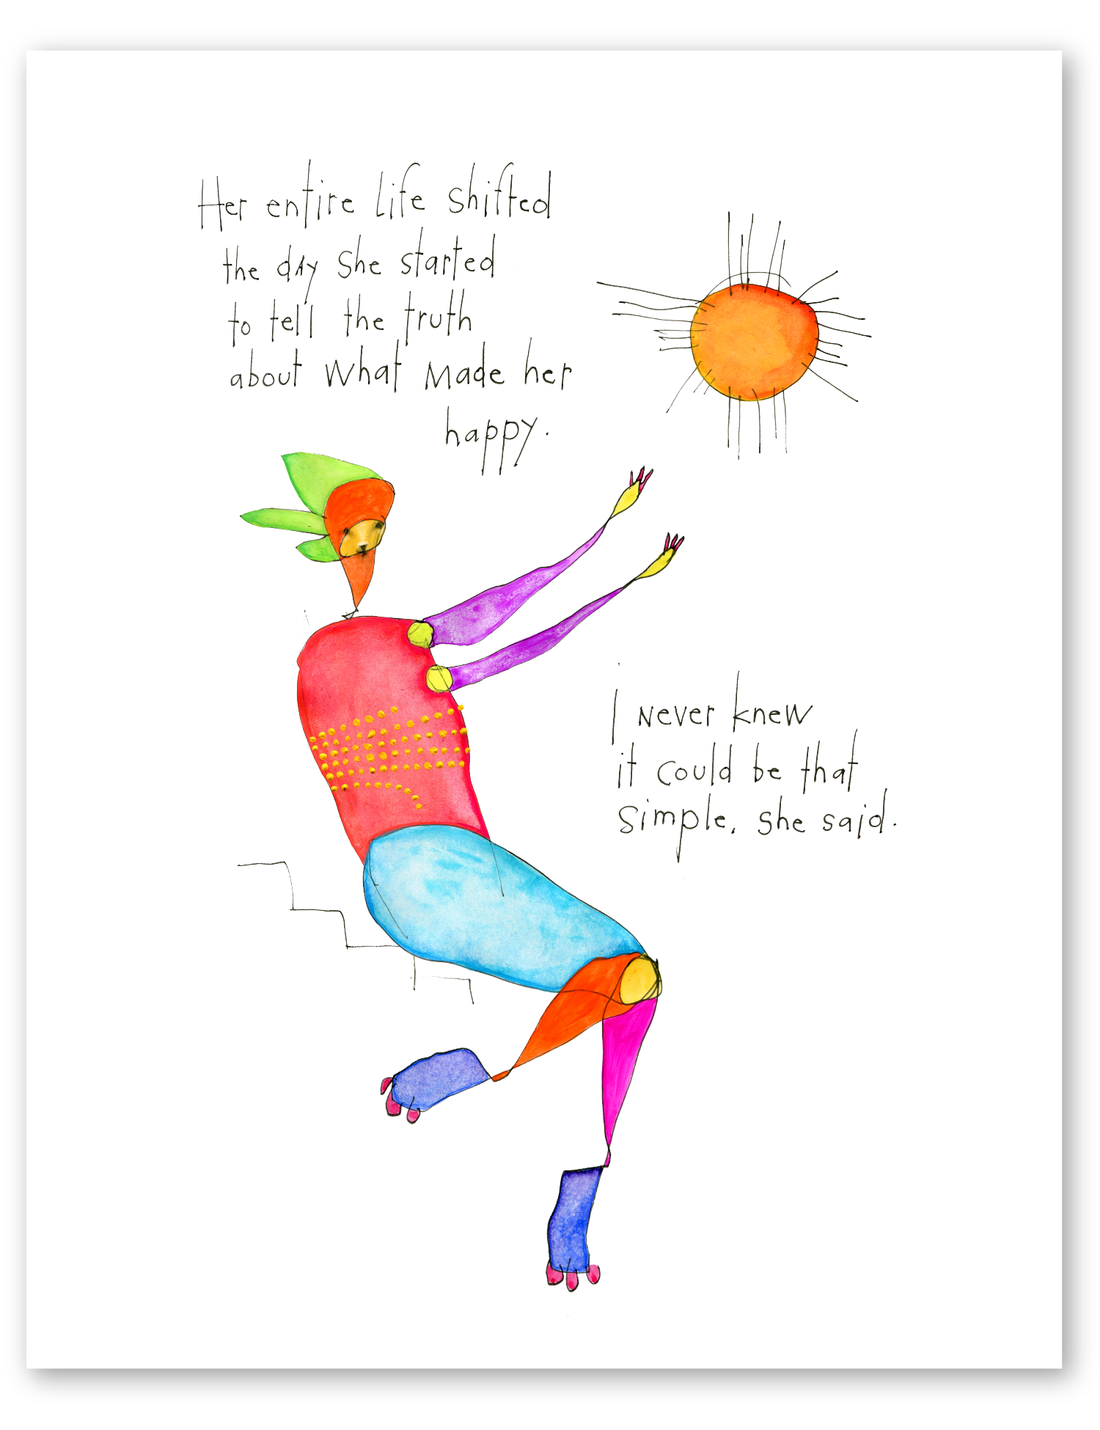 Her entire life shifted
the day she started
to tell the truth
about what made her
happy.
I never knew
it could be that
simple, she said.